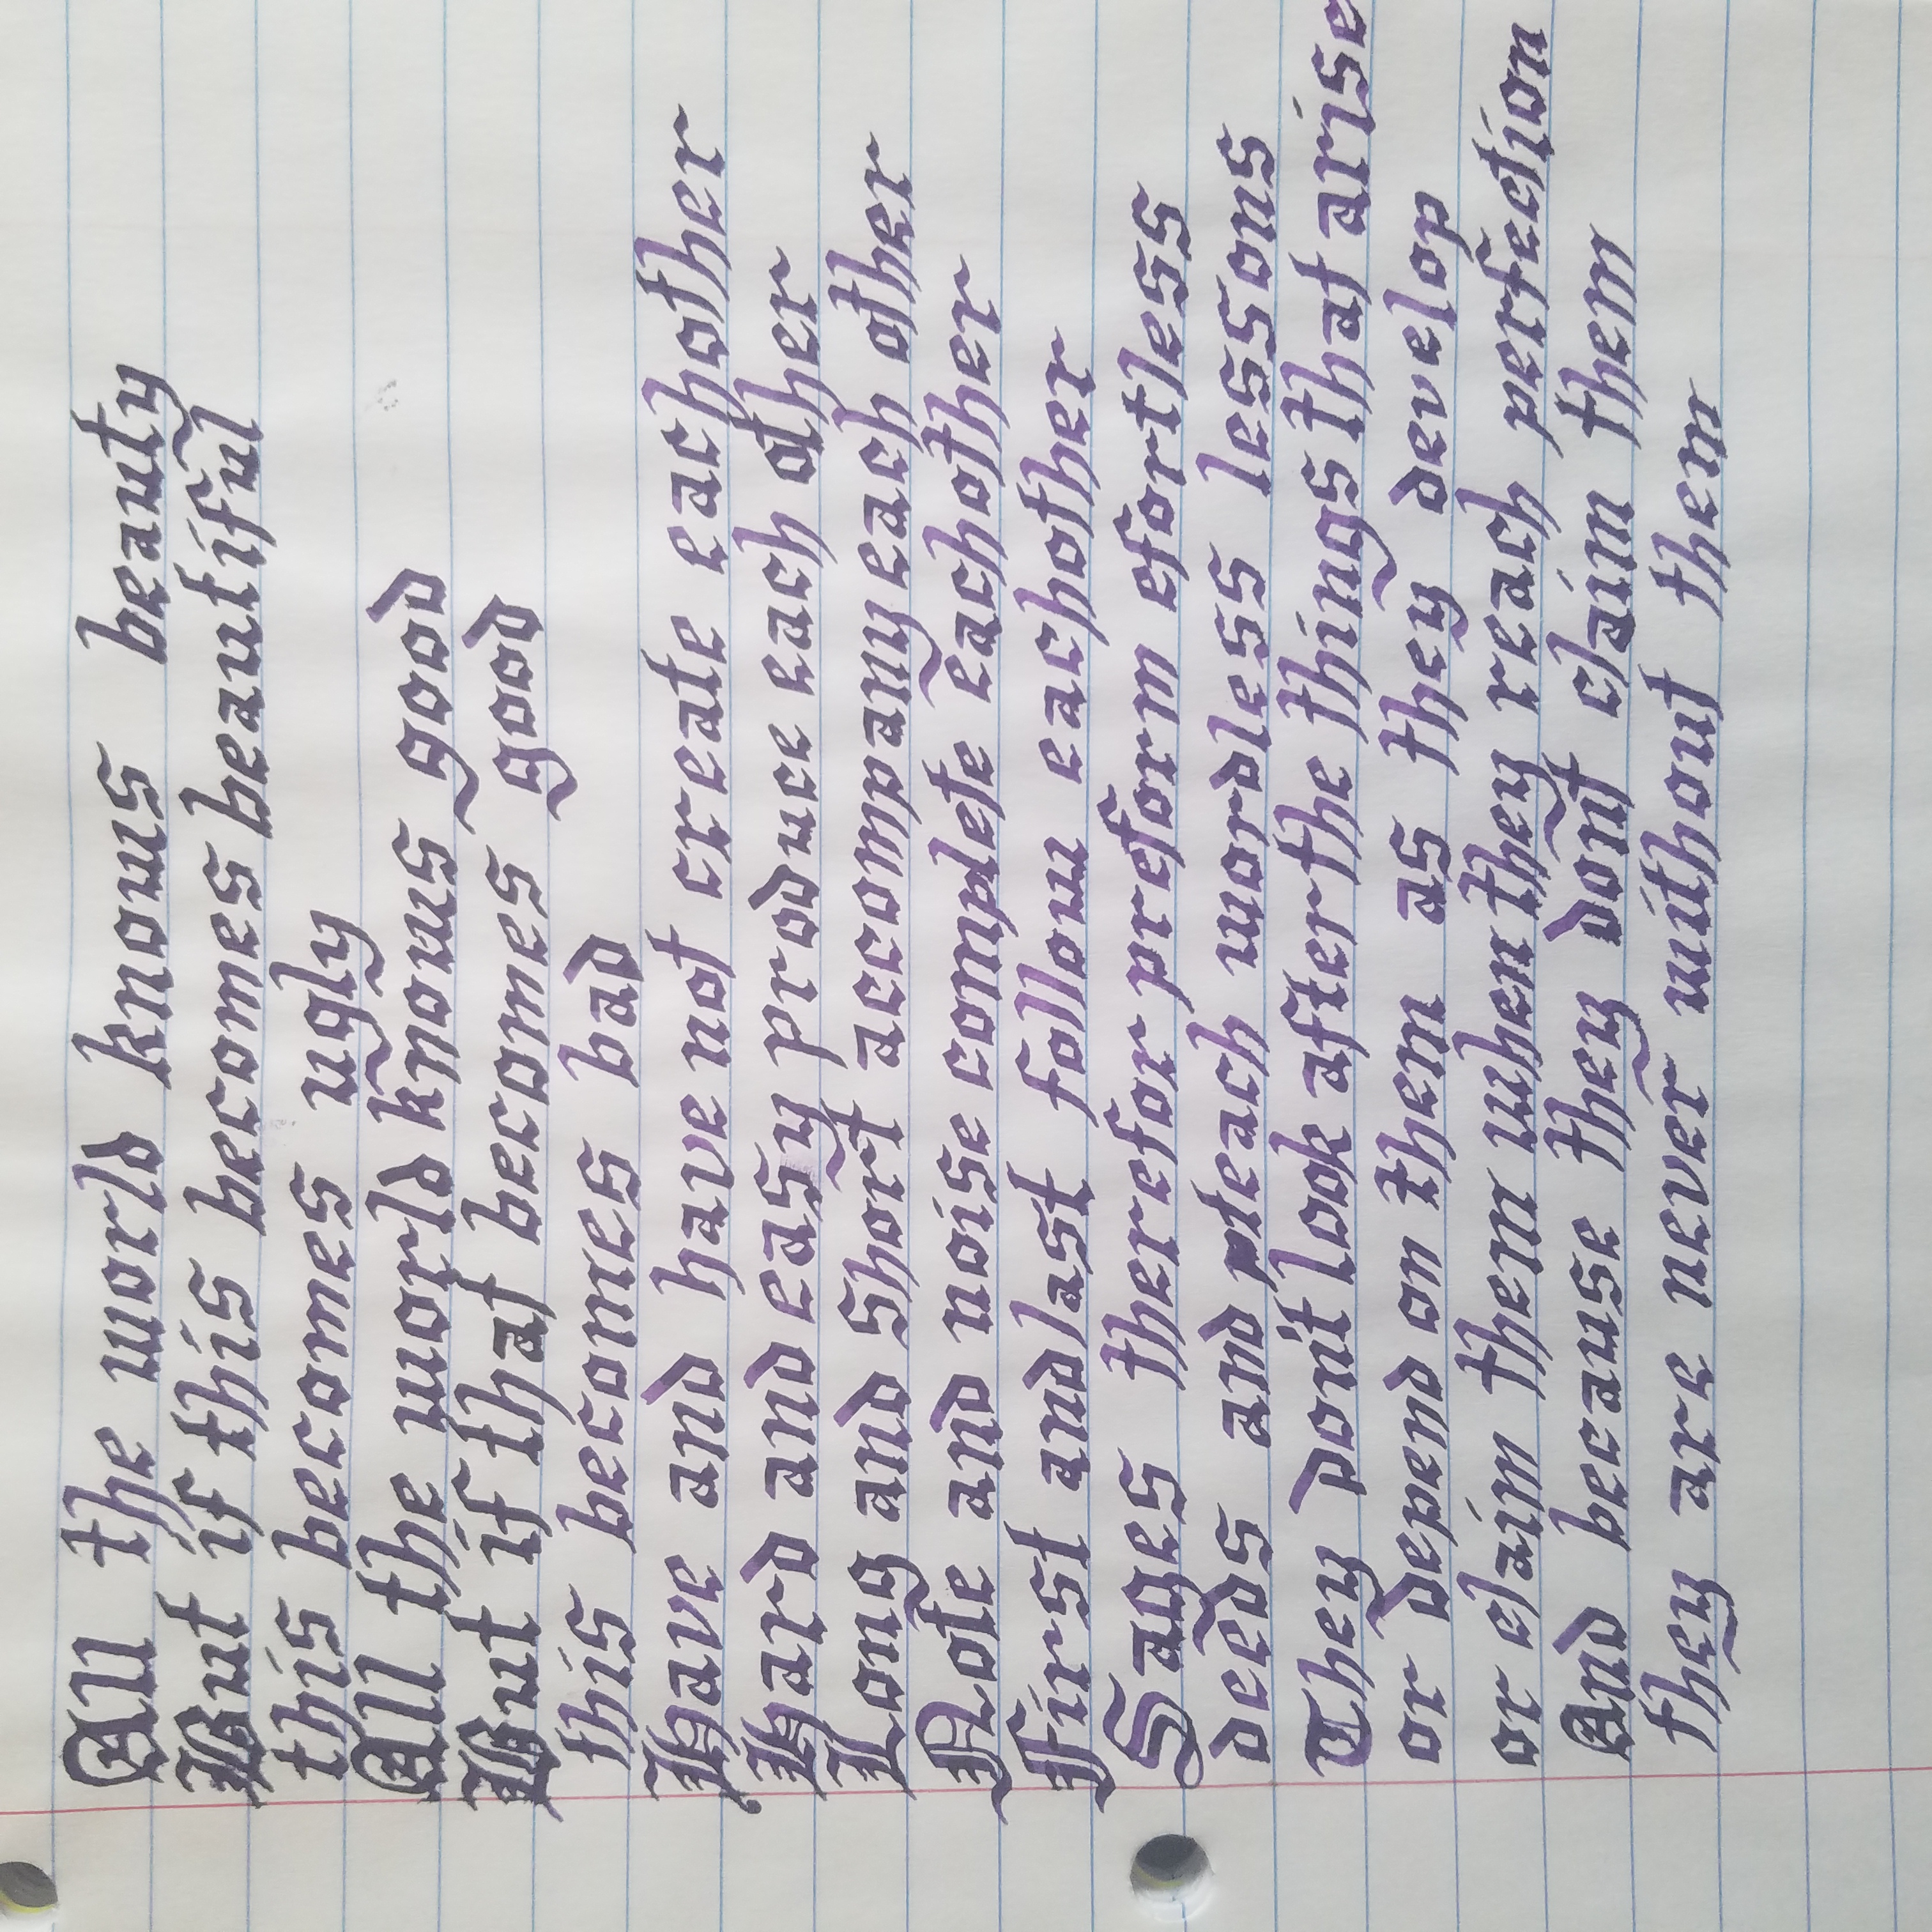 All the world knows beauty
But if this becomes beautiful
this becomes ugly
All the world knows good
But if that becomes good
this becomes bad
Have and have not create eachother
Hard and easy produce each other
Long and Short accompany each other
Note and noise complete eachother
First and last follow eachother
Sages therefor preform efortless
deeds and teach wordless lessons
They don't look after the things that arise
or depend on them as they develop
or claim them when they reach perfection
And because they dont claim them
they are never without them